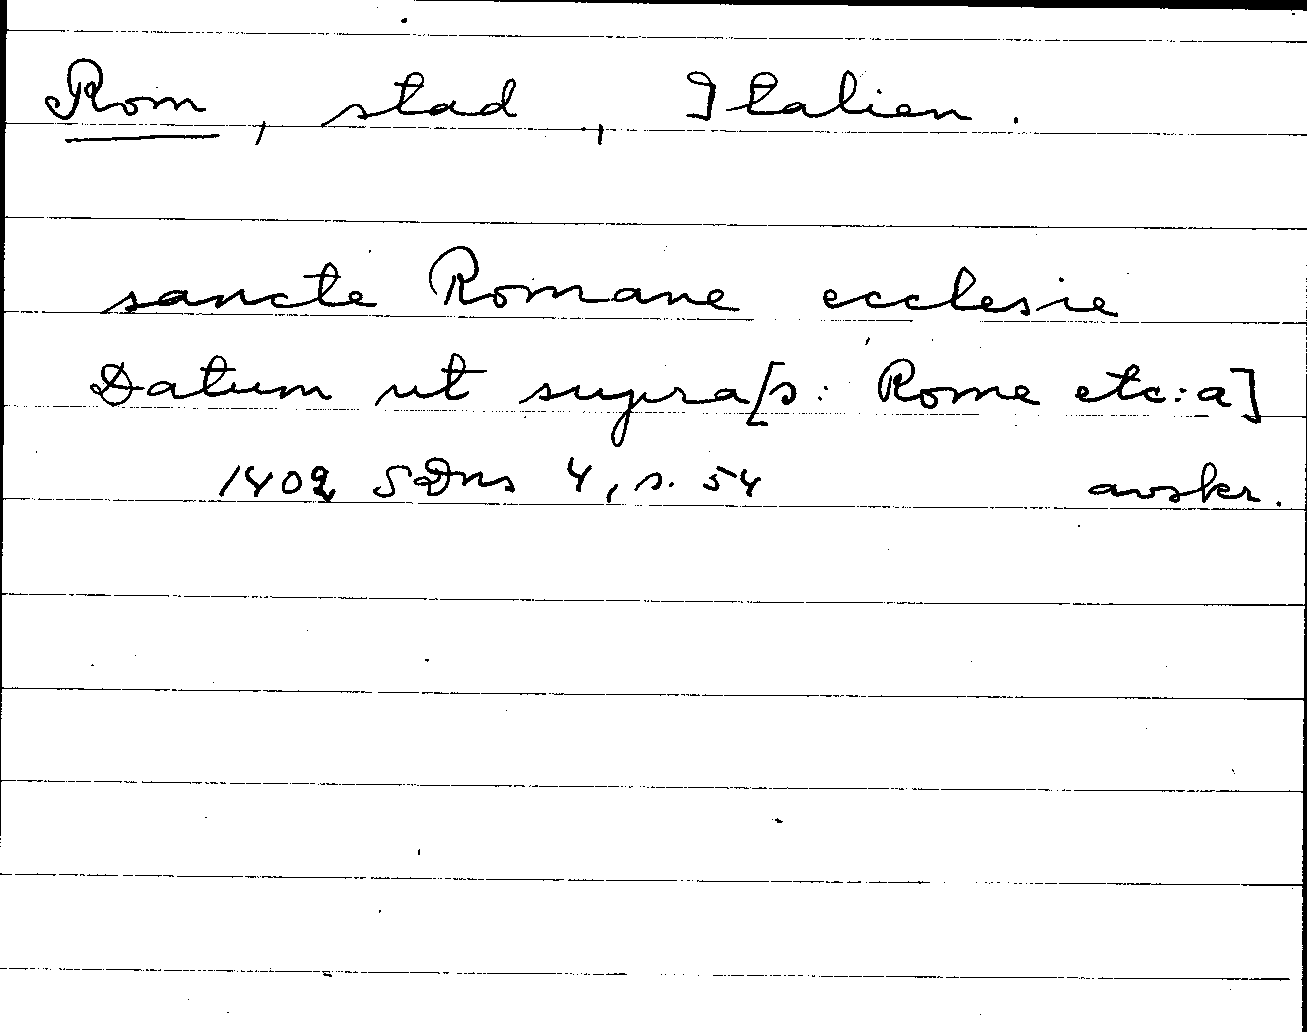 Rom, stad, Italien.
sancte Romane ecclesie
Datum ut supra [ɔ: Rome etc:a]
1402 SDns 4, s. 54 avskr.